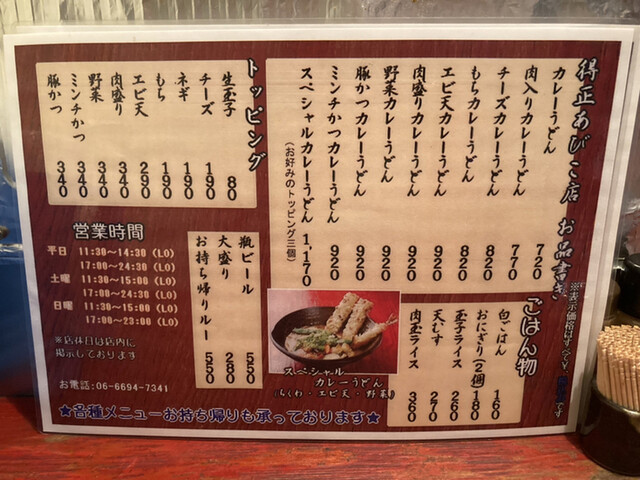 得正あびこ店 お品書き
※表示価格はすべて、です
カレーうどん 720
肉入りカレーうどん 770
チーズカレーうどん 820
もちカレーうどん 820
エビ天カレーうどん 920
肉盛りカレーうどん 920
野菜カレーうどん 920
豚かつカレーうどん 920
ミンチかつカレーうどん 920
スペシャルカレーうどん 1,170
(お好みのトッピング三個)
トッピング
生玉子 80
チーズ 190
ネギ 190
もち 190
エビ天 290
肉盛り 340
野菜 340
ミンチかつ 340
豚かつ 340
ごはん物
白ごはん 160
おにぎり(2個) 180
玉子ライス 260
天むす 270
肉玉ライス 360
スペシャル
カレーうどん
(ちくわ・エビ天・野菜)
瓶ビール 550
大盛り 280
お持ち帰りルー 550
営業時間
平日 11:30〜14:30 (LO)
17:00〜24:30 (LO)
土曜 11:30〜15:00 (LO)
17:00〜24:30 (LO)
日曜 11:30〜15:00 (LO)
17:00〜23:00 (LO)
※店休日は店内に
掲示しております
お電話:06-6694-7341
★各種メニューお持ち帰りも承っております★